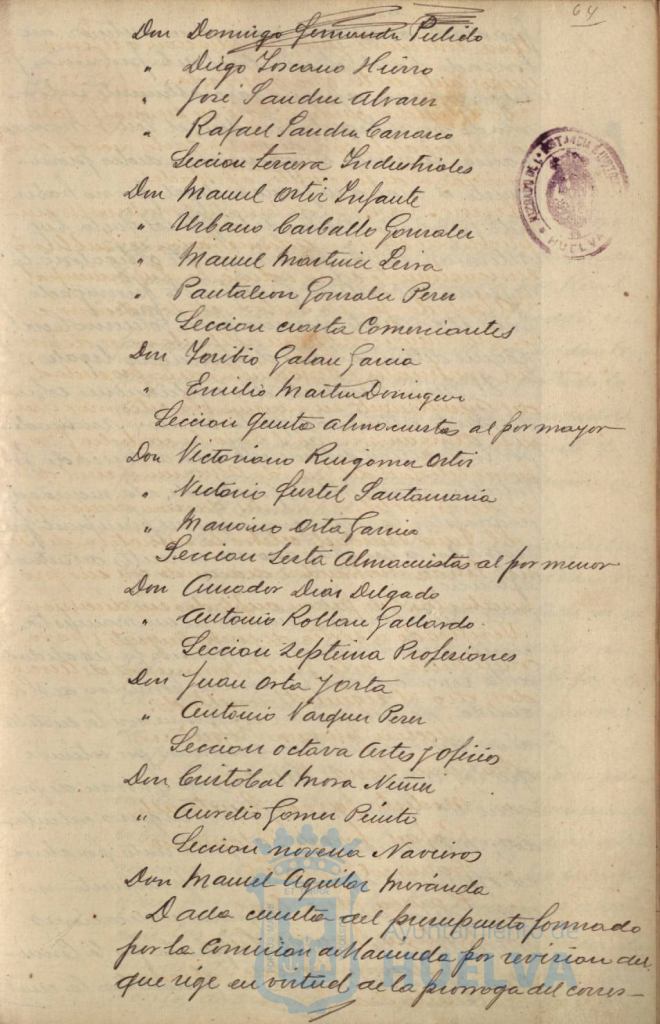 64
Don Domingo Fernandez Pulido
" Diego Toscano Hierro
" José Sanchez Alvarez
" Rafael Sanchez Carrasco
Seccion tercera Industriales
Don Manuel Ortiz Infante
" Urbano Carballo Gonzalez
" Manuel Martinez Leiva
" Pantaleon Gonzalez Perez
Seccion cuarta Comerciantes
Don Toribio Galan Garcia
" Emilio Martin Dominguez
Seccion Quinta Almacenistas al por mayor
Don Victoriano Ruigomez Ortiz
" Victorio Santamaria
" Orta Garcia
Seccion Sesta Almacenistas al por menor
Don Amador Diaz Delgado
" Antonio Rollan Gallardo
Seccion Septima Profesiones
Don Juan Orta y Orta
" Antonio Vazquez Perez
Seccion octava Artes y Oficios
Don Cristobal Mora Nuñez
" Aurelio Gomez
Seccion novena Navieros
Don Manuel Aguilar Moranda
Dada cuenta del presupuesto formado
por la Comision de Hacienda por revision del
que rige en virtud de la prorroga del corres-
HUELVA
Ayuntamiento de
HUELVA